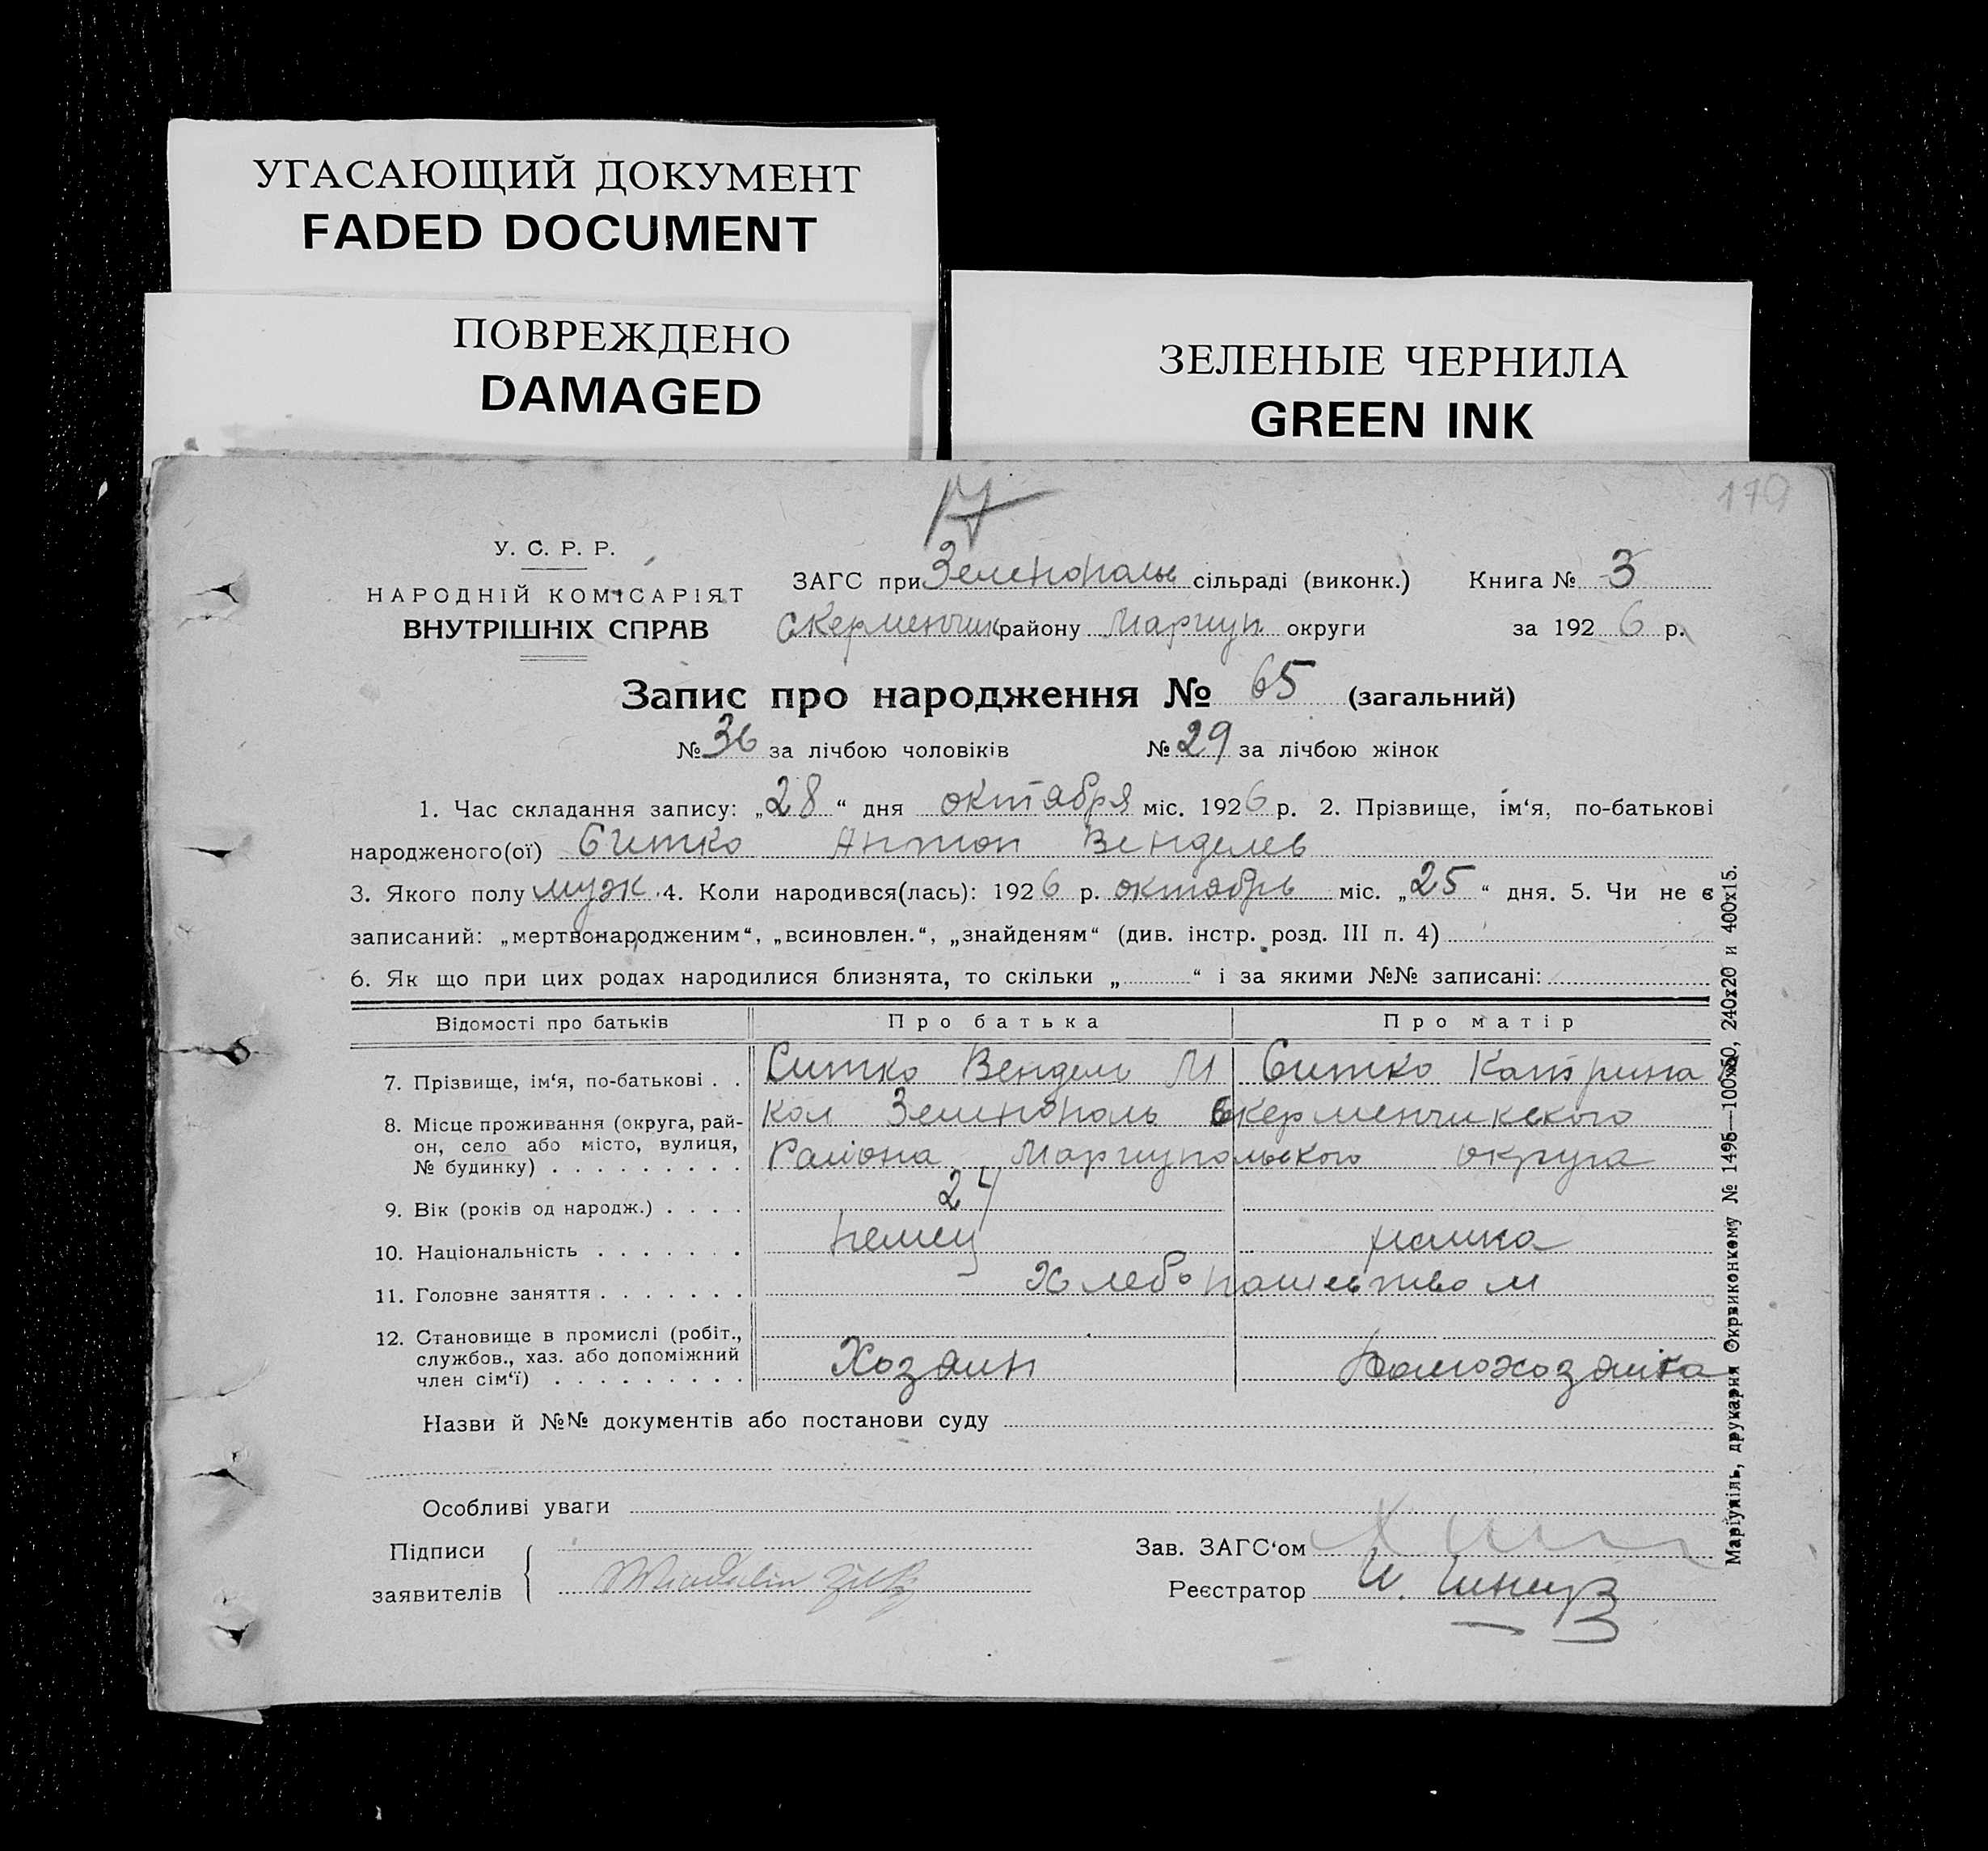 УГАСАЮЩИЙ ДОКУМЕНТ
FADED DOCUMENT
ПОВРЕЖДЕНО
DAMAGED
ЗЕЛЕНЫЕ ЧЕРНИЛА
GREEN INK
179
17
У. С. Р. Р.
НАРОДНІЙ КОМІСАРІЯТ
ВНУТРІШНІХ СПРАВ
ЗАГС при Зеленопольс сільраді (виконк.) Книга № 3
Скерменчик району Мариуп. округи за 1926 р.
Запис про народження № 65 (загальний)
№ 36 за лічбою чоловіків № 29 за лічбою жінок
1. Час складання запису: „28“ дня октября міс. 1926 р. 2. Прізвище, ім‘я, по-батькові
народженого(ої) Ситко Антон Венделев
3. Якого полу муж. 4. Коли народився(лась): 1926 р. октябрь міс. „25“ дня. 5. Чи не є
записаний: „мертвонародженим“, „всиновлен.“, „знайденям“ (див. інстр. розд. III п. 4)
6. Як що при цих родах народилися близнята, то скільки „ “ і за якими №№ записані:
Відомості про батьків Про батька Про матір
7. Прізвище, ім‘я, по-батькові . . Ситко Вендель М Ситко Катрина
8. Місце проживання (округа, рай-
он, село або місто, вулиця,
№ будинку) . . . . . . . . .
Кол Зеленополь Скерменчикского
Района Мариупольского округа
9. Вік (років од народж.) . . . . 24
10. Національність . . . . . . . немец немка
11. Головне заняття . . . . . . . Хлебопашеством
12. Становище в промислі (робіт.,
службов., хаз. або допоміжний
член сім‘ї) . . . . . . . . .
Хозяин Домохозяйка
Назви й №№ документів або постанови суду
Особливі уваги
Підписи
заявителів
Зав. ЗАГС‘ом
Реєстратор И.
Маріупіль, друкарня Окрвиконкому № 1495—100x50, 240x20 и 400x15.